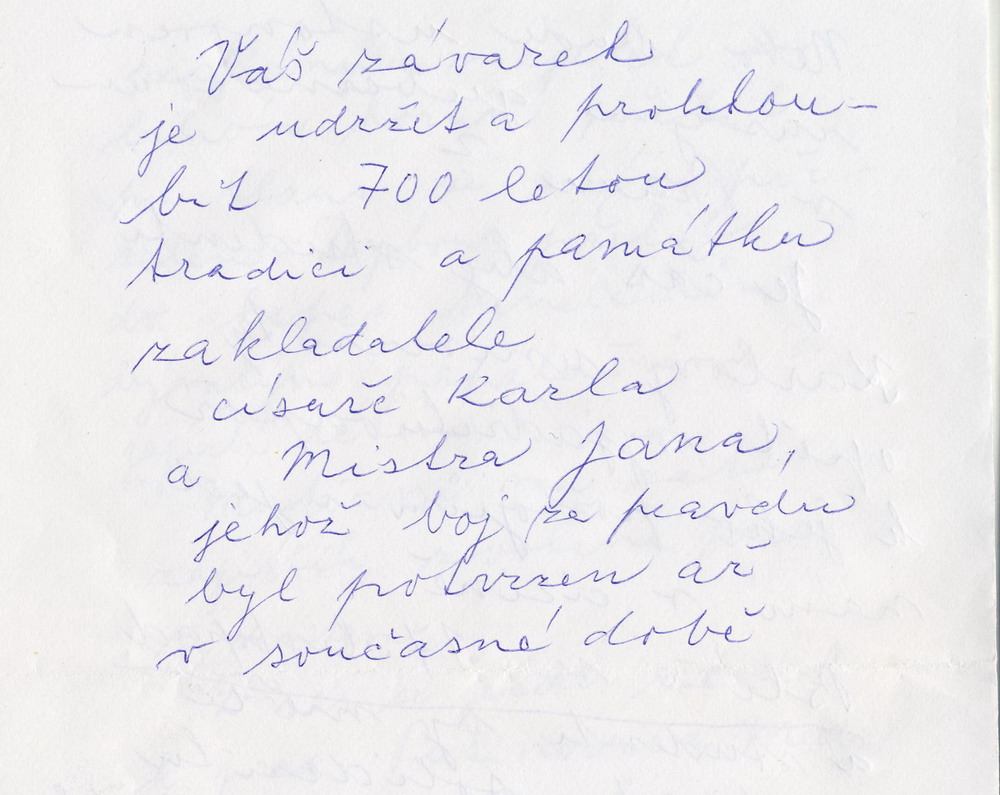 Váš závazek
je udržet a prohlou-
bit 700 letou
tradici a památku
zakladatele
císaře Karla
a Mistra Jana,
jehož boj za pravdu
byl potvrzen až
v současné době